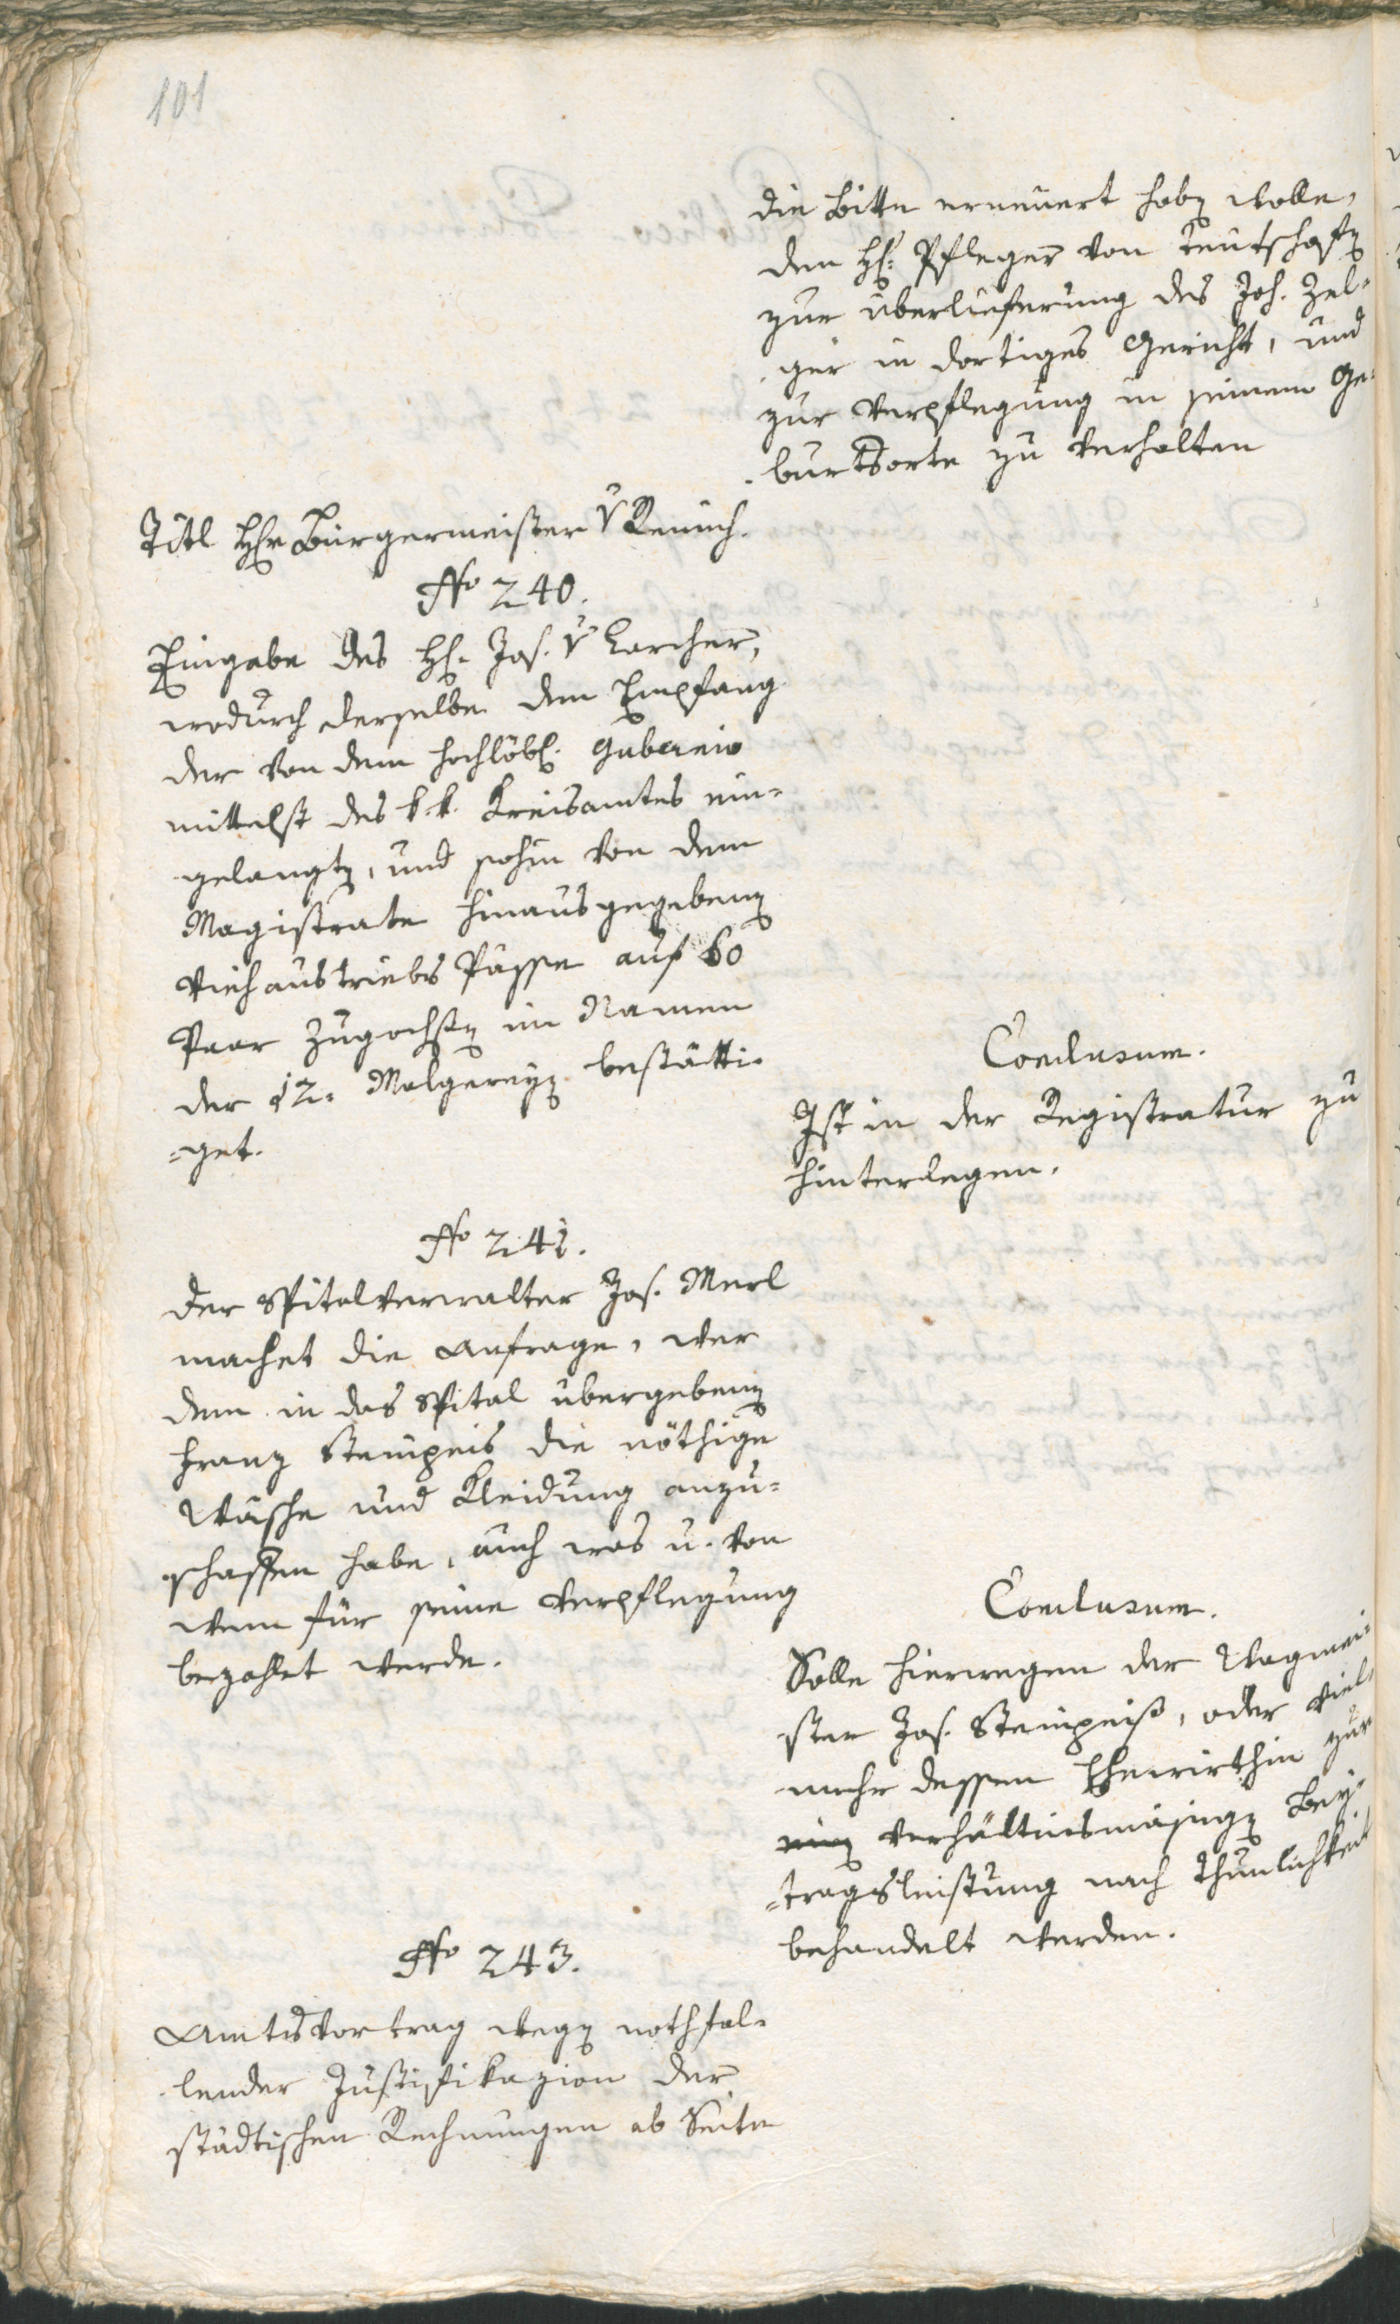 101
die Bitte erneuert haben wolle,
den H: Pfleger von Teutschofen
zur überlieferung des Joh. Zel-
ger in dortiges Gericht, und
zur Verpflegung in seinem Ge-
burtsorte zu verhalten
Titl Hr Bürgermeister v Remich.
No 240.
Eingabe des H: Jos. v Larcher,
wodurch derselbe den Empfang
der von dem hochlöbl. Gubernio
mittelst des k. k. Kreisamtes ein-
gelangten, und sohin von dem
Magistrate hinausgegebenen
Viehaustriebs Pässe auf 60
Paar Zugochsen im Namen
der 12. Malgereyen bestätti-
=get.
Conclusum.
Ist in der Registratur zu
hinterlegen.
No 241.
Der Spitalverwalter Jos. Merl
machet die Anfrage, wer
dem in das Spital übergebenen
Franz Steinpeis die nöthige
Wäsche und Kleidung anzu=
schaffen habe, auch was u. von
wem für seine Verpflegung
bezahlt werde.
Conclusum.
Solle hierwegen der Wagmei-
ster Jos. Steinpeiß, oder viel-
mehr dessen Ehewirthin zur
verhältnismäsigen Bey-
=tragsleistung nach Thunlichkeit
behandelt werden.
No 243.
Amtsvortrag wegen nothfal-
lender Justifikazion der
städtischen Rechnungen ab Seite